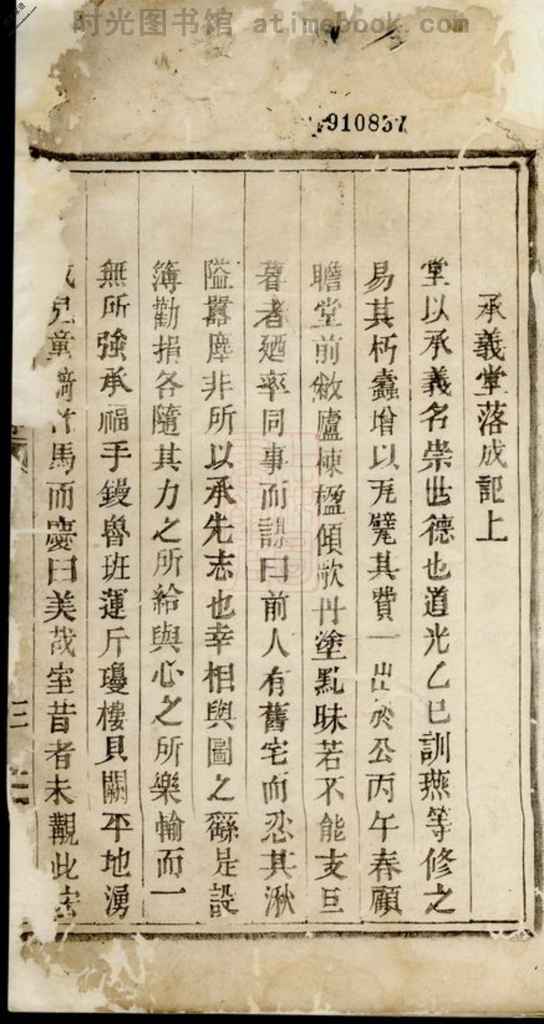 时光图书馆 atimebook.com
910837
承義堂落成記上
堂以承義名崇世德也道光乙巳訓燕等修之
易其朽蠹增以瓦甓其費一出於公丙午春顧
瞻堂前敝廬棟楹傾欹丹塗黝昧若不能支旦
暮者廼率同事而謀曰前人有舊宅而忍其湫
隘囂塵非所以承先志也幸相與圖之繇是設
簿勸捐各隨其力之所給與心之所樂輸而一
無所強承福手鏝魯班運斤瓊樓貝闕平地湧
兒童 馬而慶曰美哉室昔者未觀此
三